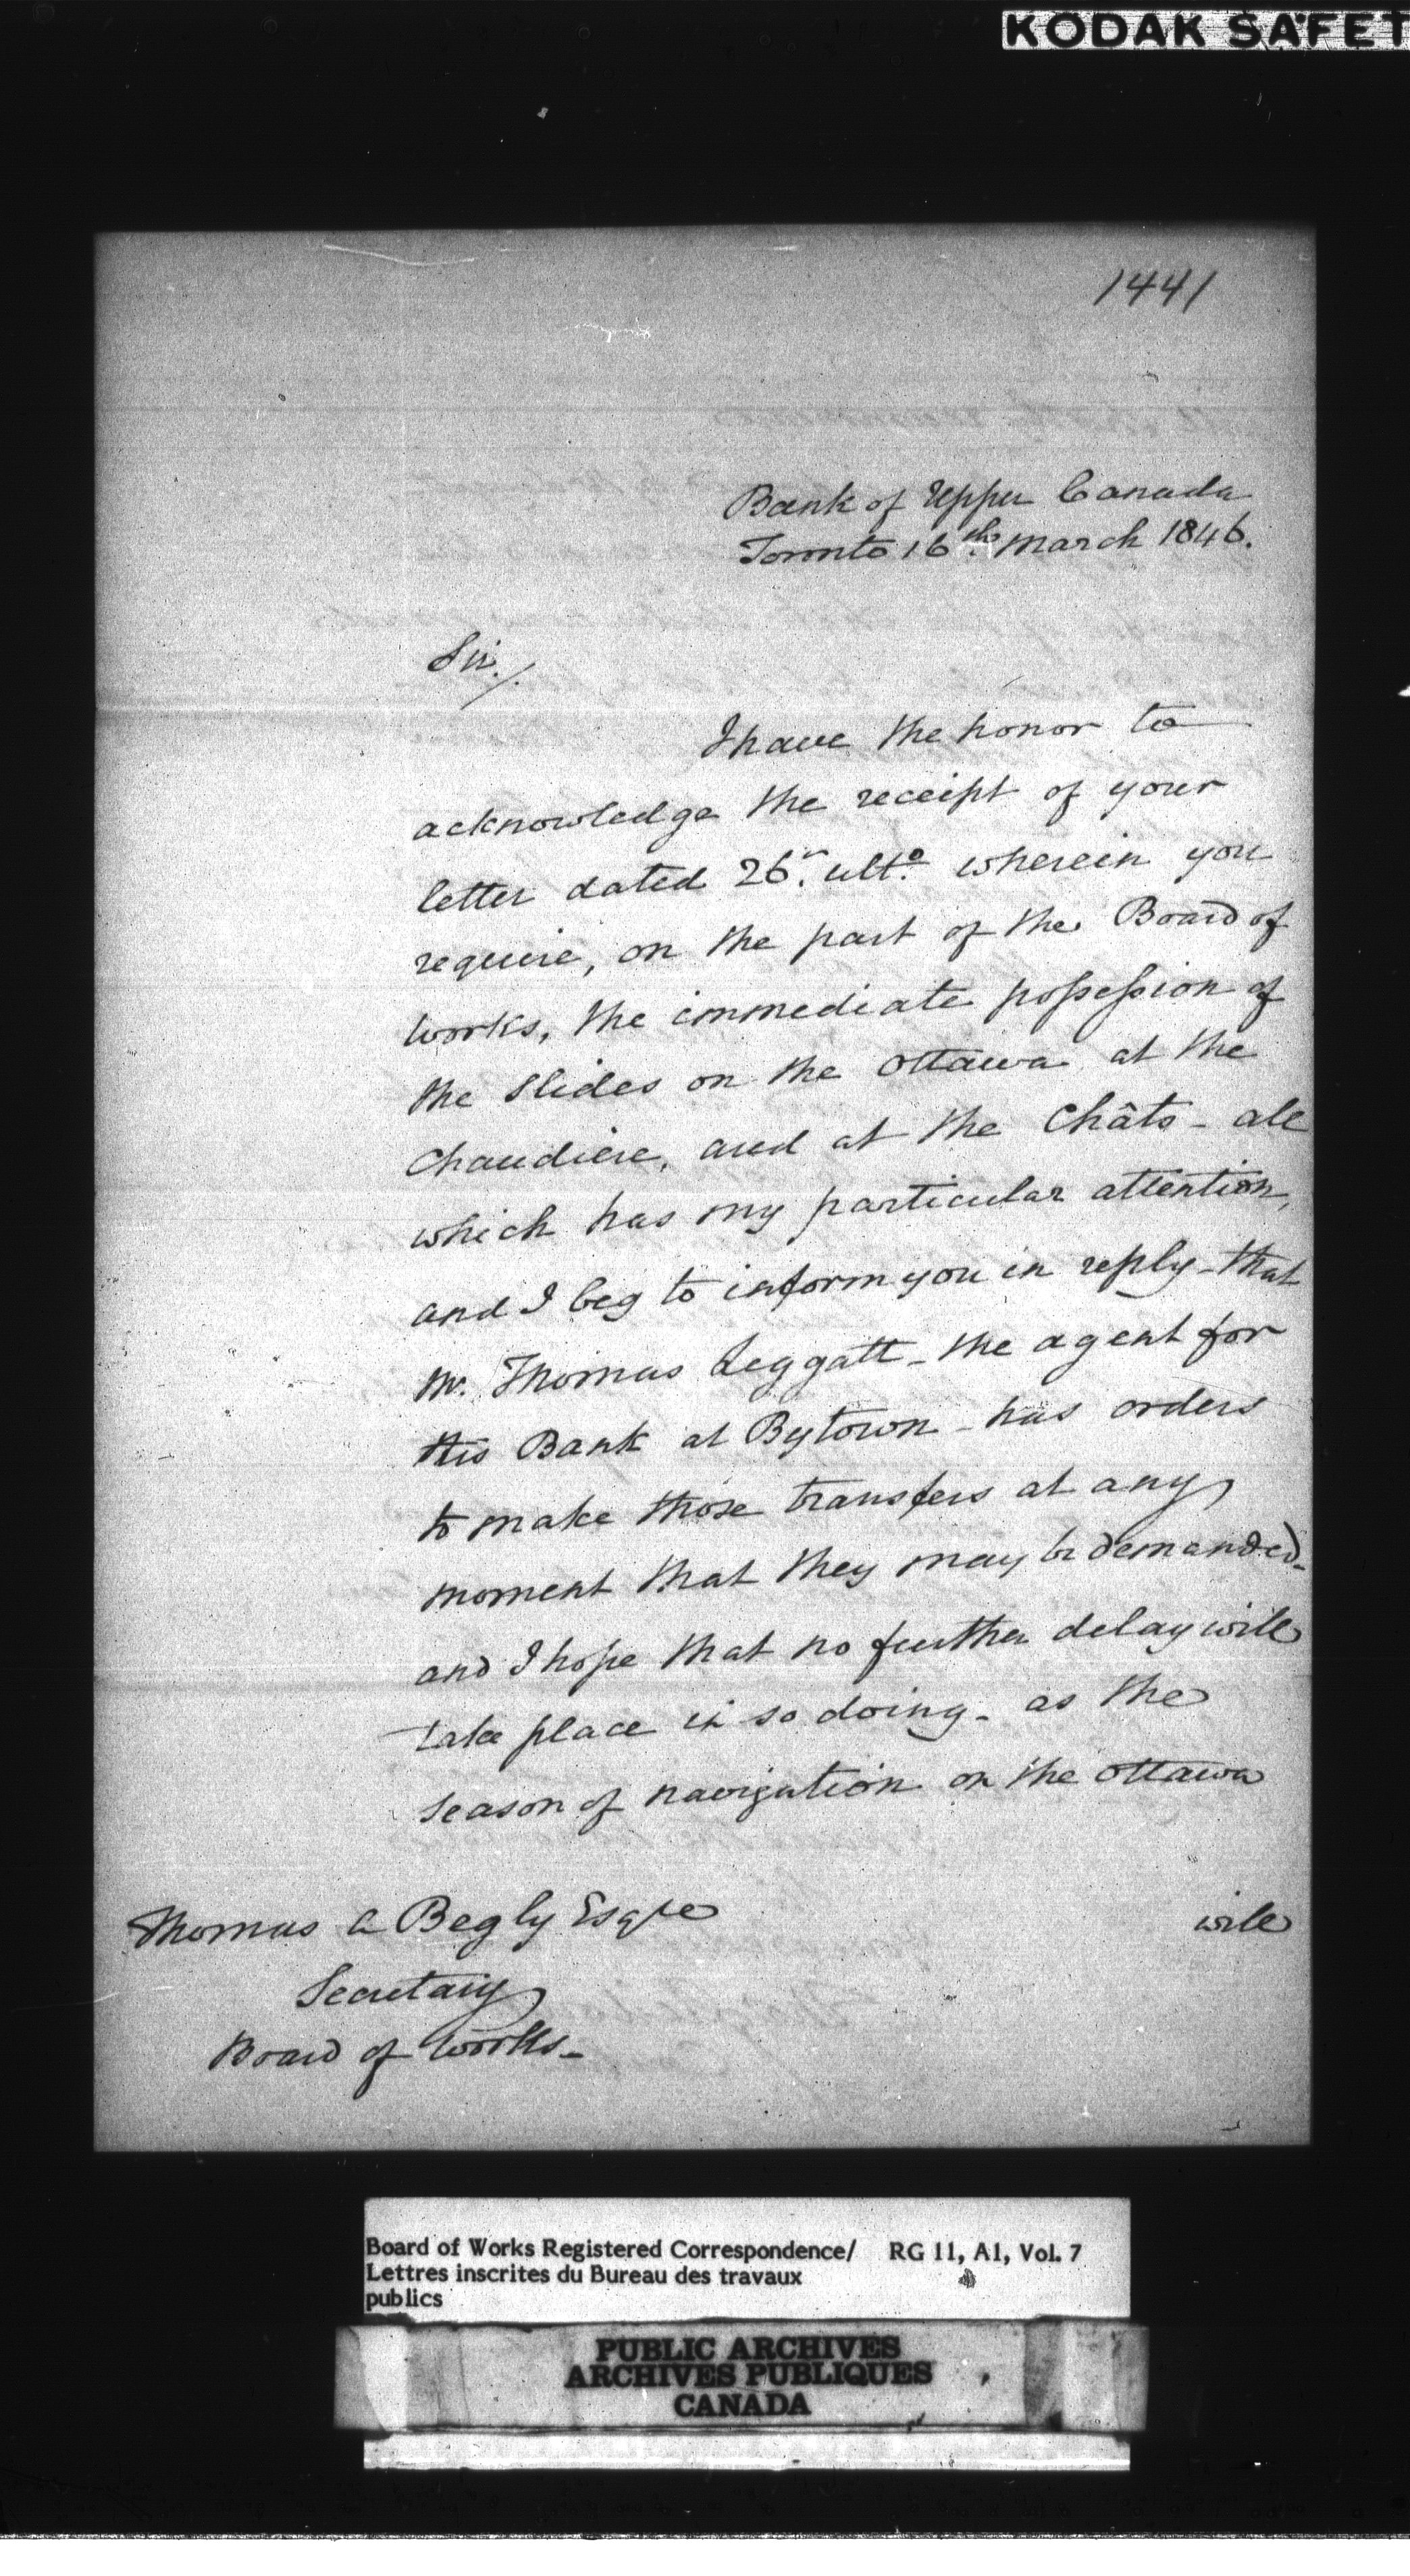 KODAK SAFET
1441
Bank of Upper Canada
Toronto 16th March 1846.
Sir./.
I have the honor to
acknowledge the receipt of your
letter dated 26. ulto. wherein you
require, on the part of the Board of
Works, the immediate possession of
the Slides on the Ottawa at the
Chaudiere, and at the Châts - all
which has my particular attention,
and I beg to inform you in reply - that
Mr. Thomas Leggatt - the agent for
this Bank at Bytown - has orders
to make those transfers at any
moment that they may be demanded -
and I hope that no further delay will
take place in so doing - as the
season of navigation on the Ottawa
will
Thomas A Begly Esqre
Secretary
Board of Works -
Board of Works Registered Correspondence/ RG 11, A1, Vol. 7
Lettres inscrites du Bureau des travaux
publics
PUBLIC ARCHIVES
ARCHIVES PUBLIQUES
CANADA